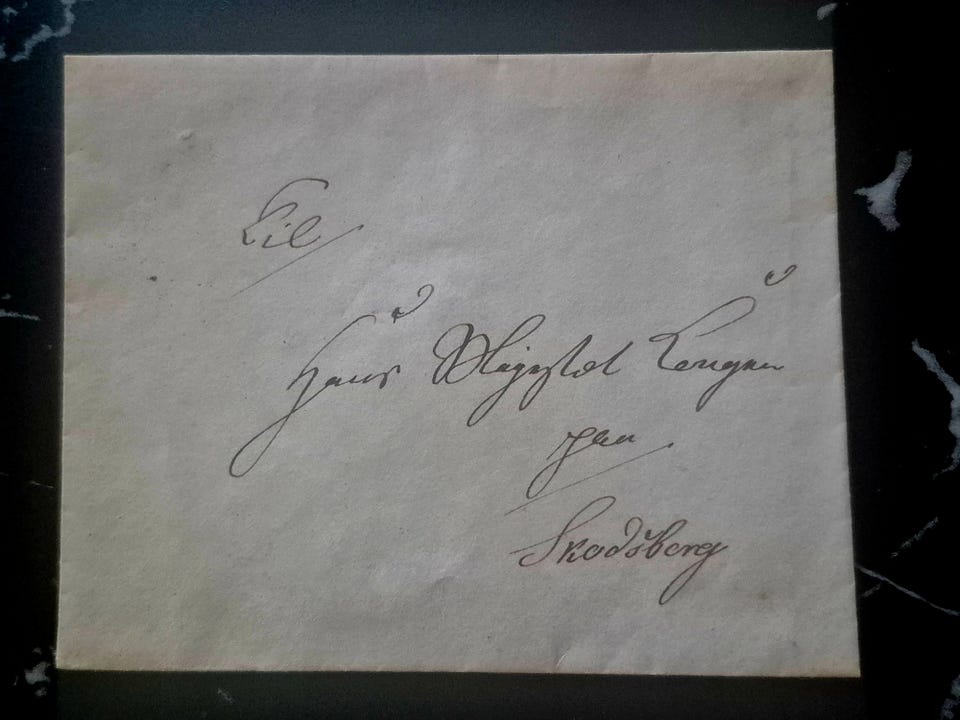 Til
Hans Majestæt Kongen
paa
Skodsborg